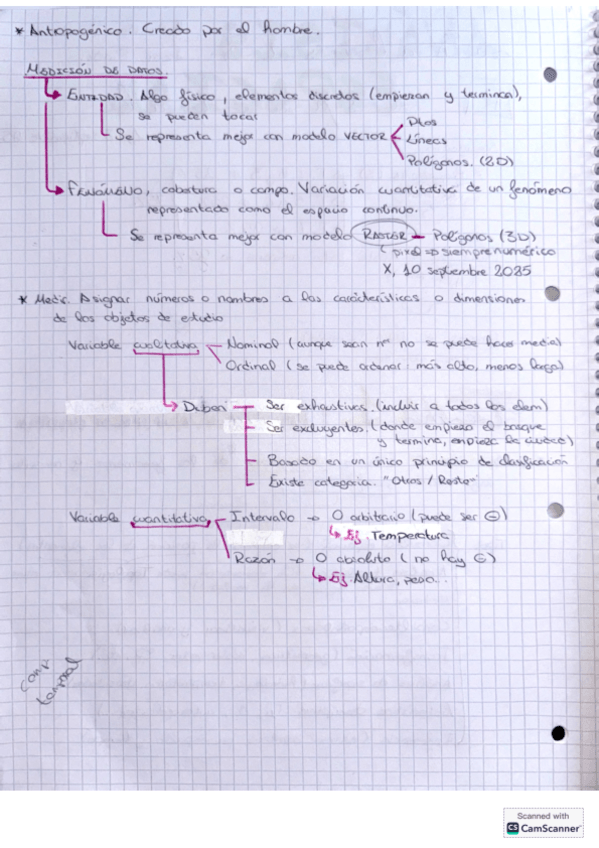 * Antopogénico. Creado por el hombre.
MEDICIÓN DE DATOS.
ENTIDAD. Algo físico, elementos discretos (empiezan y terminan),
se pueden tocar
Se representa mejor con modelo VECTOR
Ptos
Líneas
Polígonos. (2D)
FENÓMENO, cobertura o campo. Variación cuantitativa de un fenómeno
representado como el espacio continuo.
Se representa mejor con modelo RASTER - Polígonos (3D)
(pixel => siempre numérico
X, 10 septiembre 2025
* Medir. Asignar números o nombres a las características o dimensiones
de los objetos de estudio
Variable cualitativa
Nominal (aunque sean nos no se puede hacer media)
Ordinal (se puede ordenar: más alto, menos largo)
Deben
Ser exhaustivas. (incluir a todos los elem)
Ser excluyentes. (donde empieza el bosque
y termina, empieza la ciudad)
Basado en un único principio de clasificación
Existe categoría. "Otros / Resto"
Variable cuantitativa
Intervalo → O arbitrario (puede ser ⊖)
↳ Ej. Temperatura
Razón → O absoluto (no hay ⊖)
↳ Ej. Altura, peso..
temporal
Scanned with
CS CamScanner